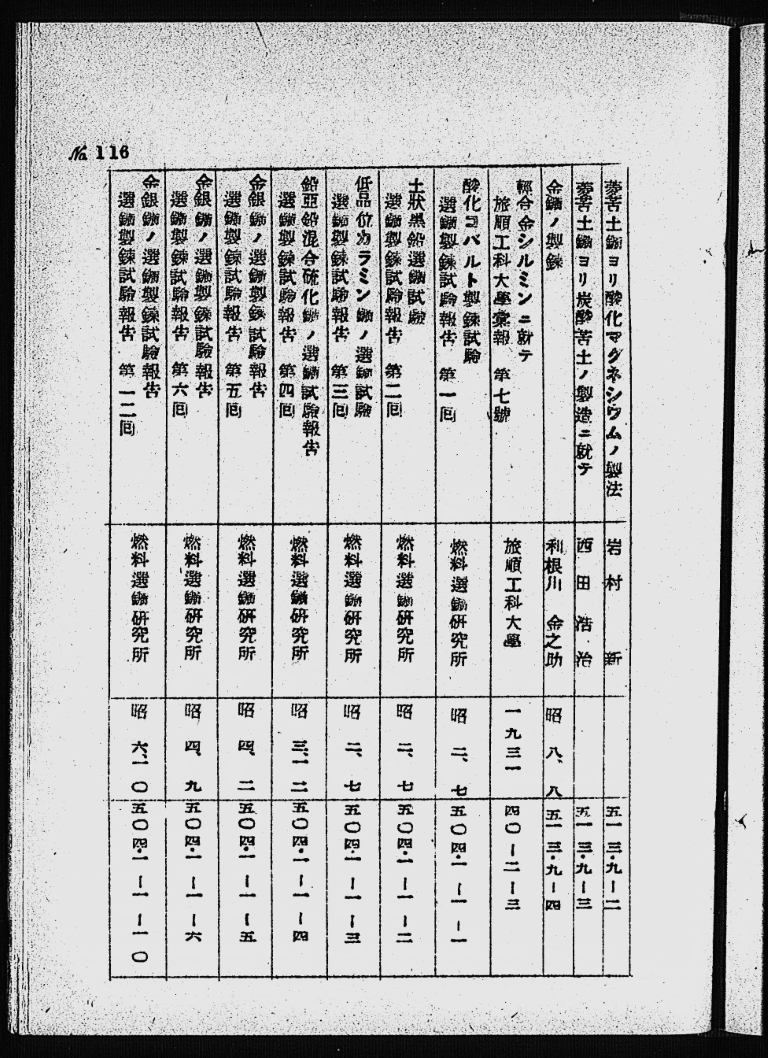 No. 116
菱苦土鑛ヨリ酸化マグネシウムノ製法
岩村 新
五一三・九—二
菱苦土鑛ヨリ炭酸苦土ノ製造ニ就テ
西田 浩治
五一三・九—三
金鑛ノ製錬
利根川 金之助
昭 八、八
五一三・九—四
輕合金シルミンニ就テ
旅順工科大學彙報 第七號
旅順工科大學
一九三一
四〇—二—三
酸化コバルト製錬試驗
選鑛製錬試驗報告 第一囘
燃料選鑛研究所
昭 二、七
五〇四・一—一—一
土狀黑鉛選鑛試驗
選鑛製錬試驗報告 第二囘
燃料選鑛研究所
昭 二、七
五〇四・一—一—二
低品位カラミン鑛ノ選鑛試驗
選鑛製錬試驗報告 第三囘
燃料選鑛研究所
昭 二、七
五〇四・一—一—三
鉛亞鉛混合硫化鑛ノ選鑛試驗報告
選鑛製錬試驗報告 第四囘
燃料選鑛研究所
昭 三、一二
五〇四・一—一—四
金銀鑛ノ選鑛製錬試驗報告
選鑛製錬試驗報告 第五囘
燃料選鑛研究所
昭 四、二
五〇四・一—一—五
金銀鑛ノ選鑛製錬試驗報告
選鑛製錬試驗報告 第六囘
燃料選鑛研究所
昭 四、九
五〇四・一—一—六
金銀鑛ノ選鑛製錬試驗報告
選鑛製錬試驗報告 第一二囘
燃料選鑛研究所
昭 六、一〇
五〇四・一—一—一〇